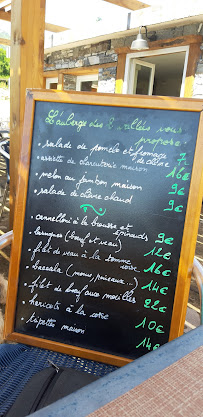 L'auberge des 2 vallées vous
propose:
. salade de pomelo et fromage
de chèvre 7
. assiette de charcuterie maison 16€
. melon au jambon maison 9€
. salade de chèvre chaud 9€
. cannelloni à la brousse et
épinards 9€
. lasagnes (boeuf et veau) 12€
. filet de veau à la pomme
corse 16€
. 14€
. filet de boeuf aux morilles 22€
. haricots à la corse 10€
. maison 14€